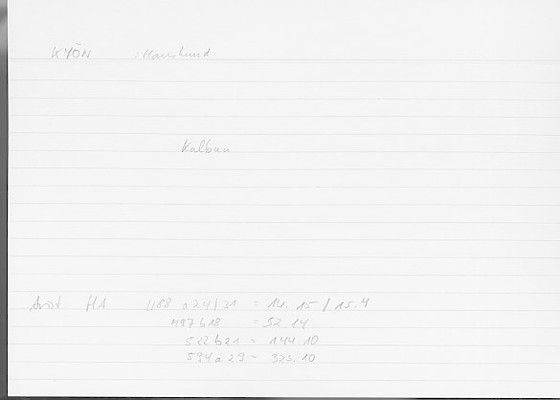 KYŌN : Haushund
Kalbun
Arist HA 1188 a 24/31 = 14.15 / 15.4
497 b 18 = 52.14
512 b 21 = 144.10
594 a 29 = 323.10